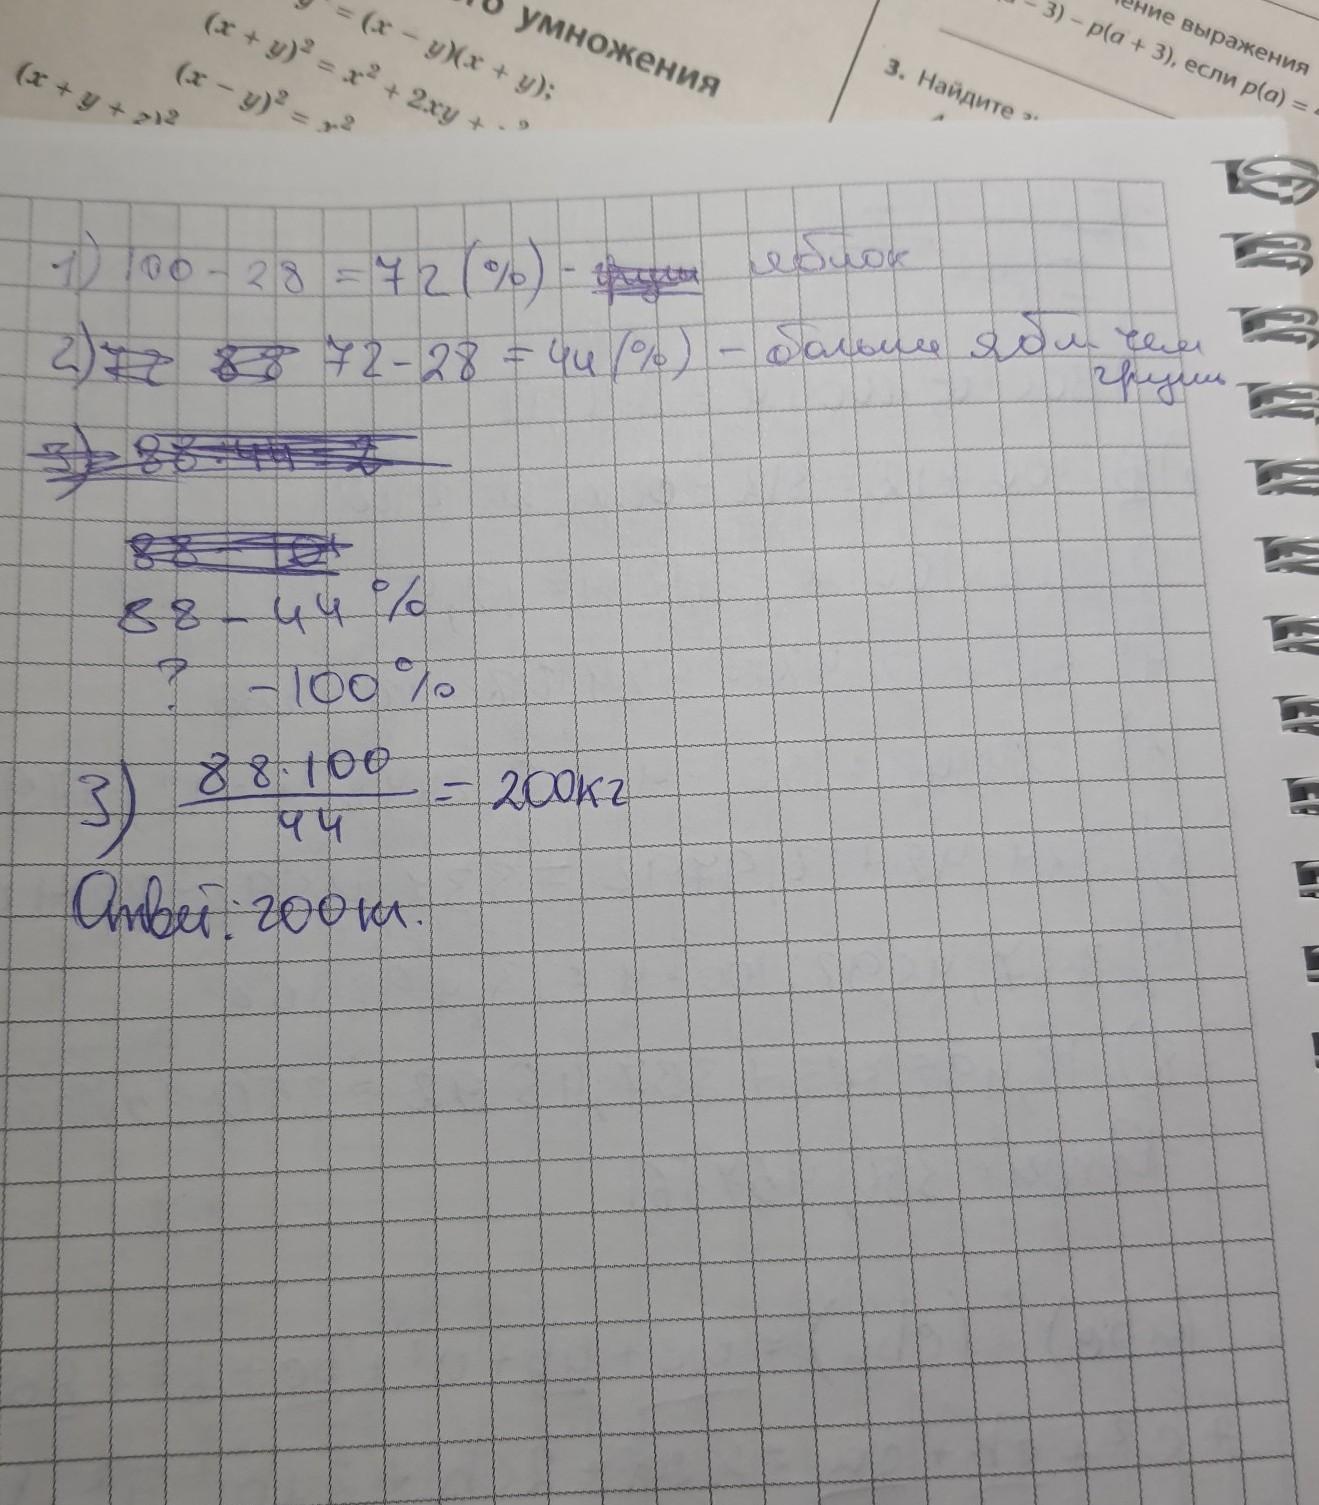 умножения
= (x − y)(x + y);
(x + y)² = x² + 2xy +
(x − y)² = x²
(x + y +
выражения
− 3) − p(a + 3), если p(a) =
3. Найдите
1) 100 - 28 = 72 (%) - яблок
2) 72 - 28 = 44 (%) - больше ябл. чем
груш
88 - 44 %
? - 100 %
3) 88 · 100 / 44 = 200кг
Ответ: 200кг.